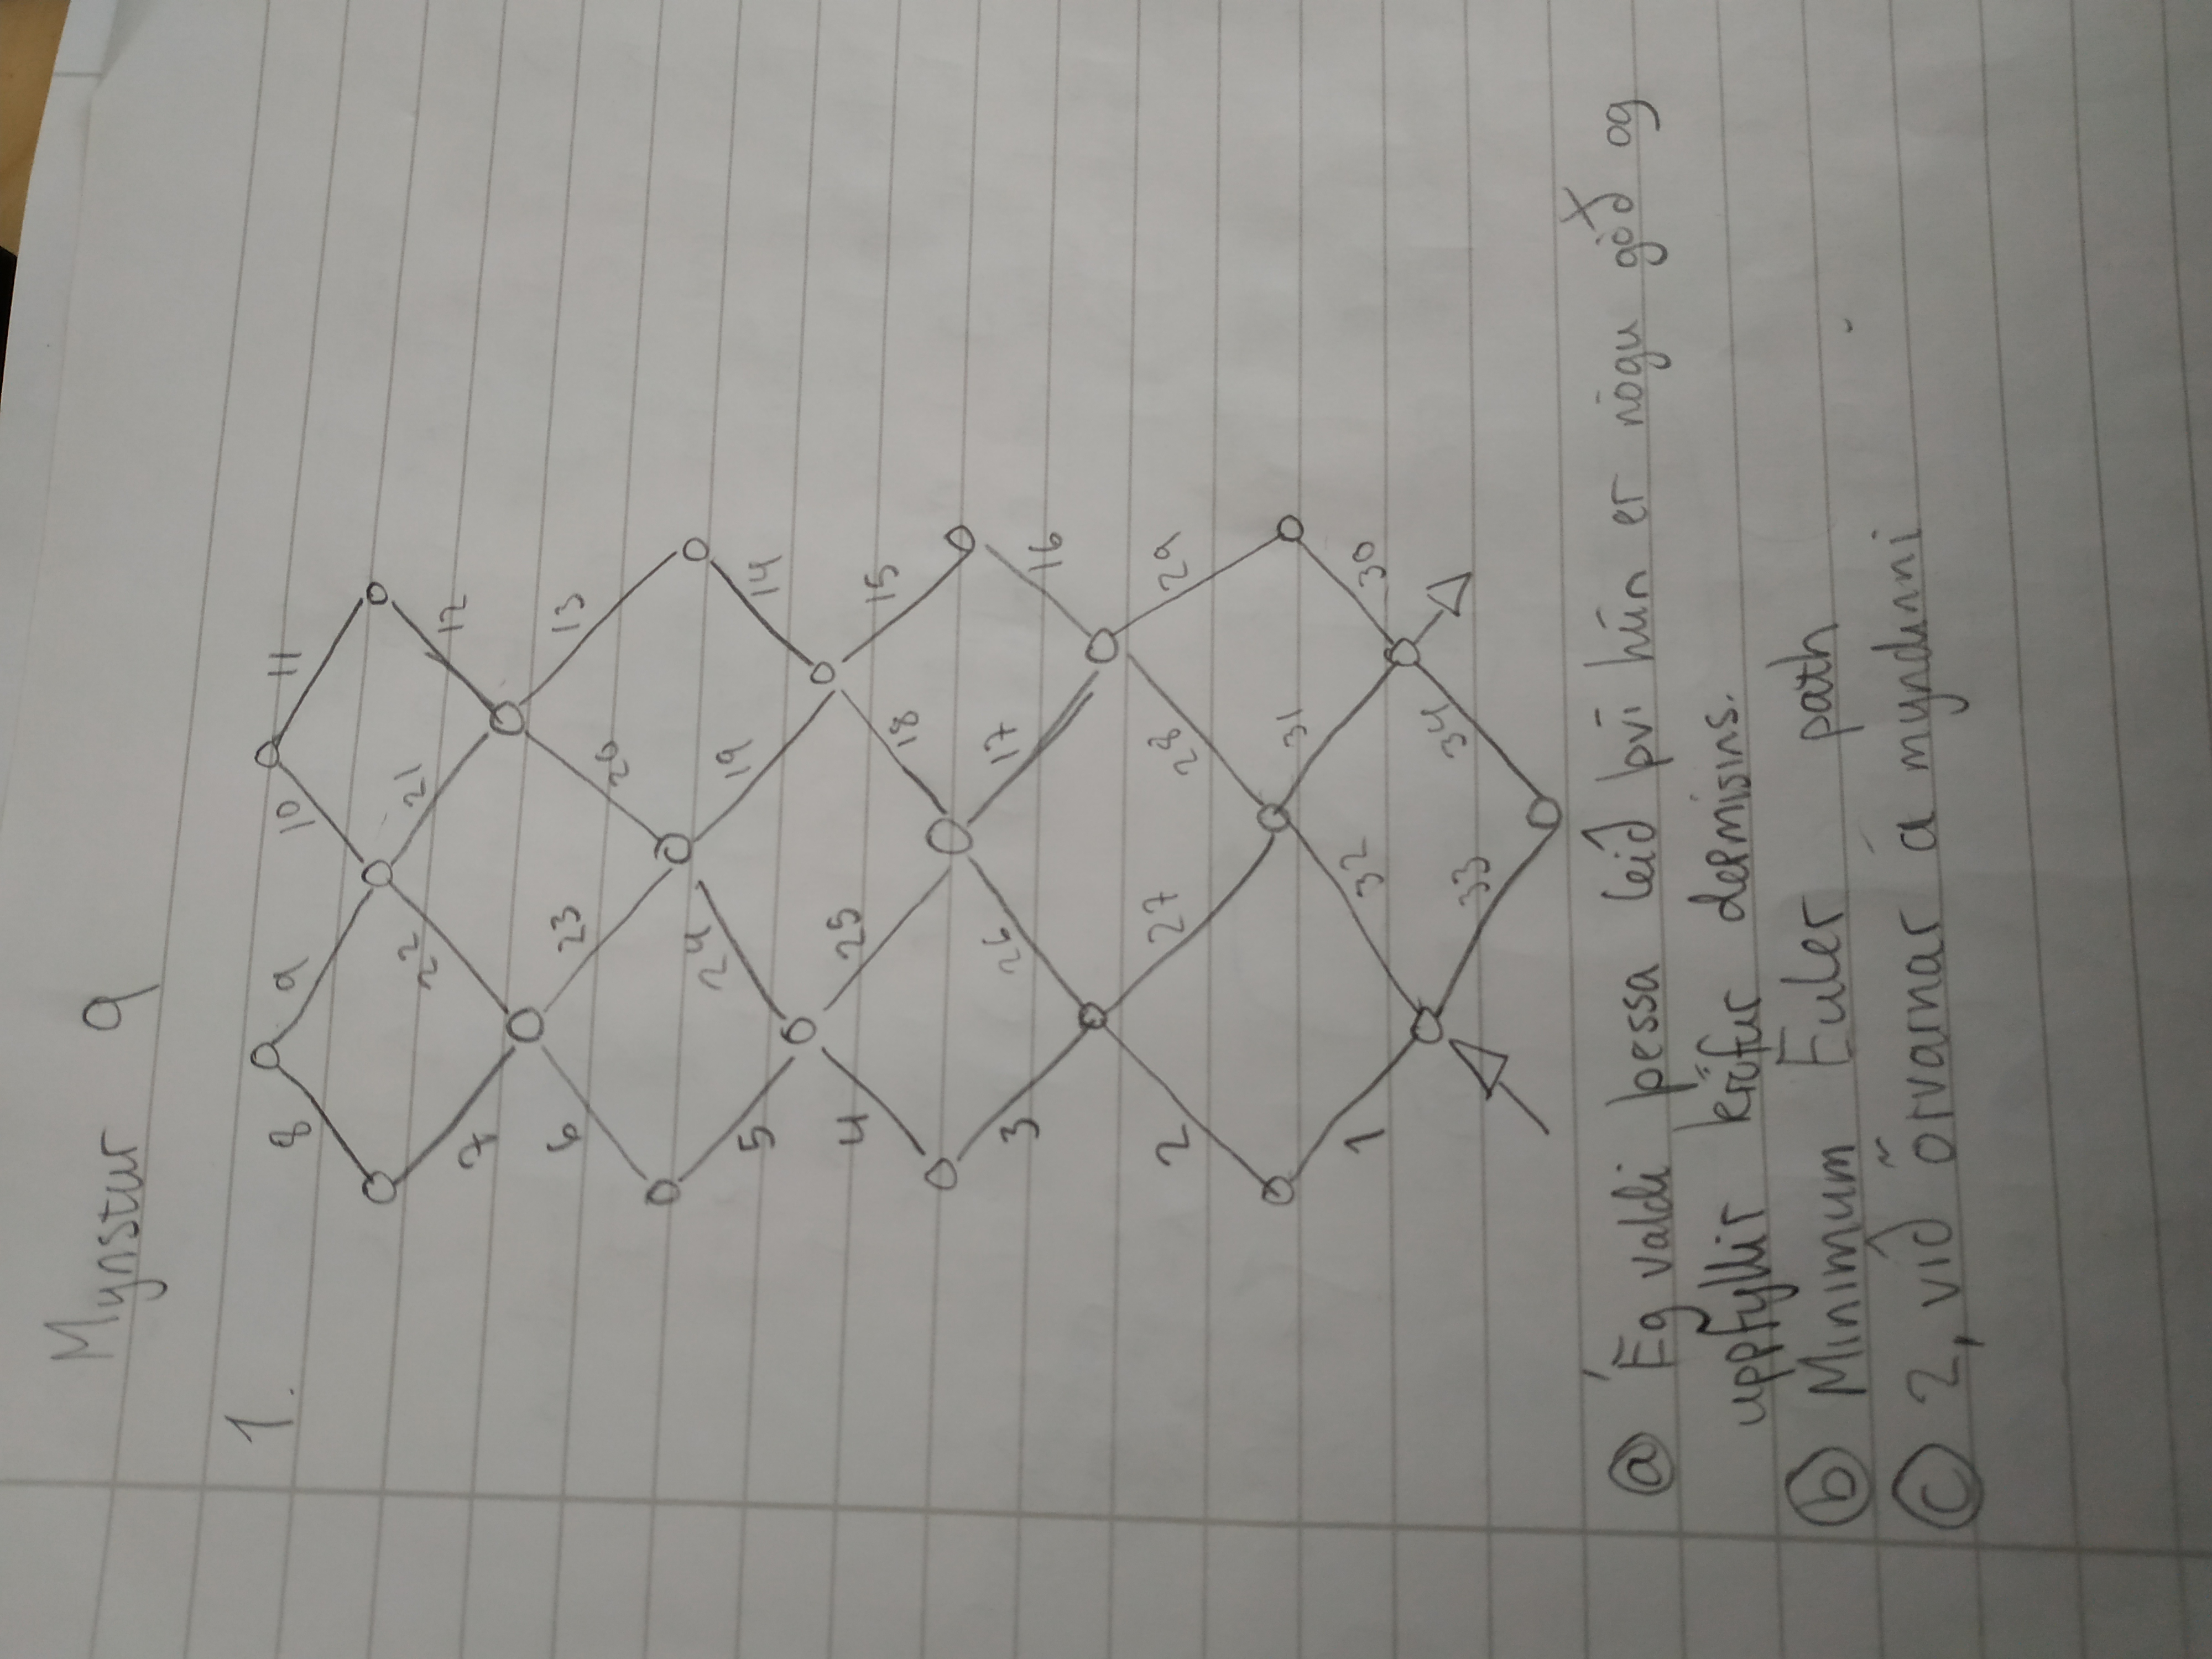 Mynstur 9
1.
8 9 10 11
22 21
7 12
6 23 13
20
24 19
5 14
4 25 15
18
26 17
3 16
2 27 28 29
31
1 32 30
33 34
ⓐ Ég valdi þessa leið því hún er nógu góð og
uppfyllir kröfur dæmisins.
ⓑ Minimum Euler path
ⓒ 2, við örvarnar á myndinni